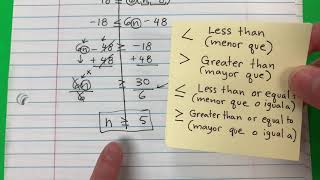 -18 ≤ 6n - 48
6n - 48 ≥ -18
+ 48 +48
6n ≥ 30
6 6
n ≥ 5
< Less than
(menor que)
> Greater than
(mayor que)
≤ Less than or equal to
(menor que o igual a)
≥ Greater than or equal to
(mayor que o igual a)